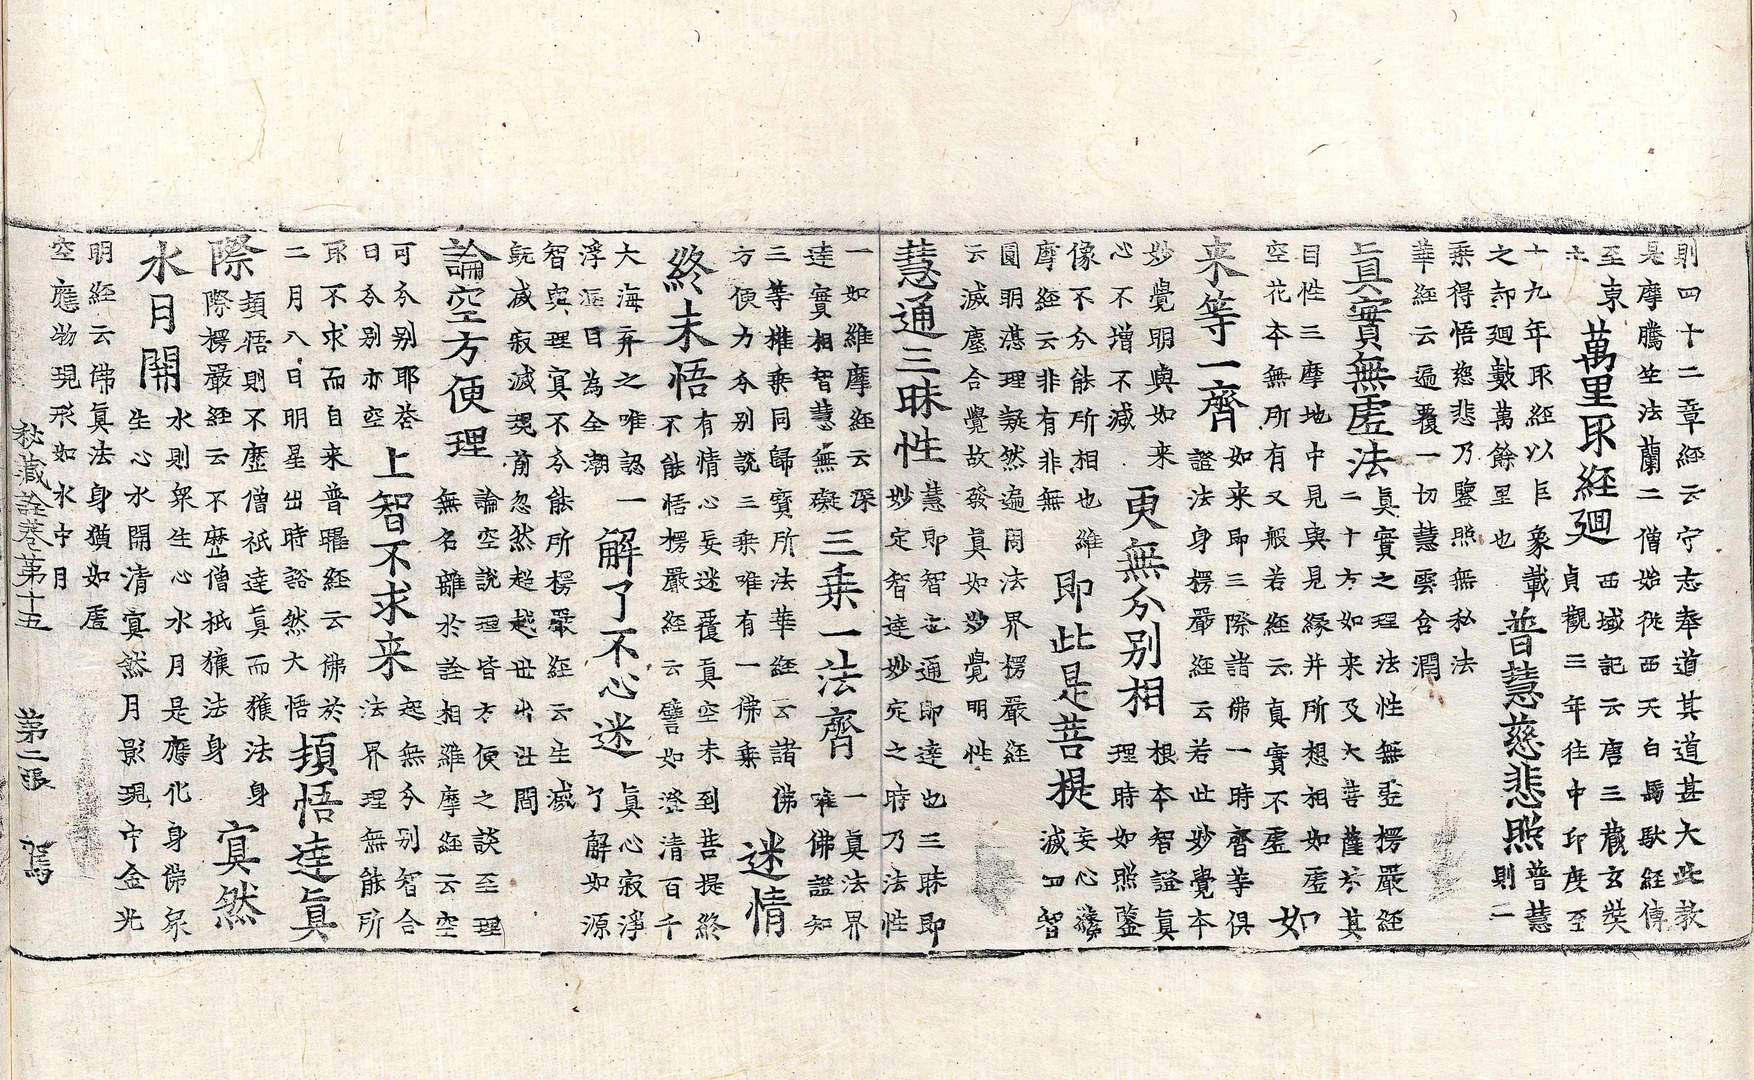 則四十二章經云宁志奉道其道甚大此教
是摩騰竺法蘭二僧始從西天白馬馱經傳
至東
土
萬里取經廻
西域記云唐三藏玄奘
貞觀三年往中印度至
十九年取經以巨象載
之却廻數萬餘里也
普慧慈悲照
普慧
則二
乘得悟慈悲乃鑒照無私法
華經云遍覆一切慧雲含潤
真實無虛法
真實之理法性無楞嚴經
二十方如来及大菩薩於其
自性三摩地中見與見緣并所想相如虛
空花本無所有又般若經云真實不虛
如
来等一齊
如来即三際諸佛一時齊等俱
證法身楞嚴經云若此妙覺本
妙覺明與如来
心不增不減
更無分別相
根本智證真
理時如照鑒
像不分能所相也維
摩經云非有非無
即此是菩提
妄心纔
滅四智
圓明湛理凝然遍周法界楞嚴經
云滅塵合覺故發真如妙覺明性
慧通三昧性
慧即智也通即達也三昧即
妙定智達妙定之時乃法性
一如維摩經云深
達實相智慧無礙
三乘一法齊
一真法界
唯佛證知
三等權乘同歸實所法華經云諸佛
方便力分別說三乘唯有一佛乘
迷情
終未悟
有情心妄迷覆真空未到菩提終
不能悟楞嚴經云譬如澄清百千
大海弃之唯認一
浮漚目為全潮
解了不心迷
真心寂淨
了解如源
智寞理寞不分能所楞嚴經云生滅
既滅寂滅現前忽然超越世出世間
論空方便理
論空說理皆方便之談至理
無名離於詮相維摩經云空
可分別耶荅
曰分別亦空
上智不求来
起無分別智合
法界理無能所
取不求而自来普曜經云佛於
二月八日明星出時豁然大悟
頓悟達真
際
頓悟則不歷僧祇達真而獲法身
際楞嚴經云不歷僧祇獲法身
寞然
水月開
水則眾生心水月是應化身佛眾
生心水開清寞然月影現中金光
明經云佛真法身猶如虛
空應物現形如水中月
秘藏詮卷第十五 第二張